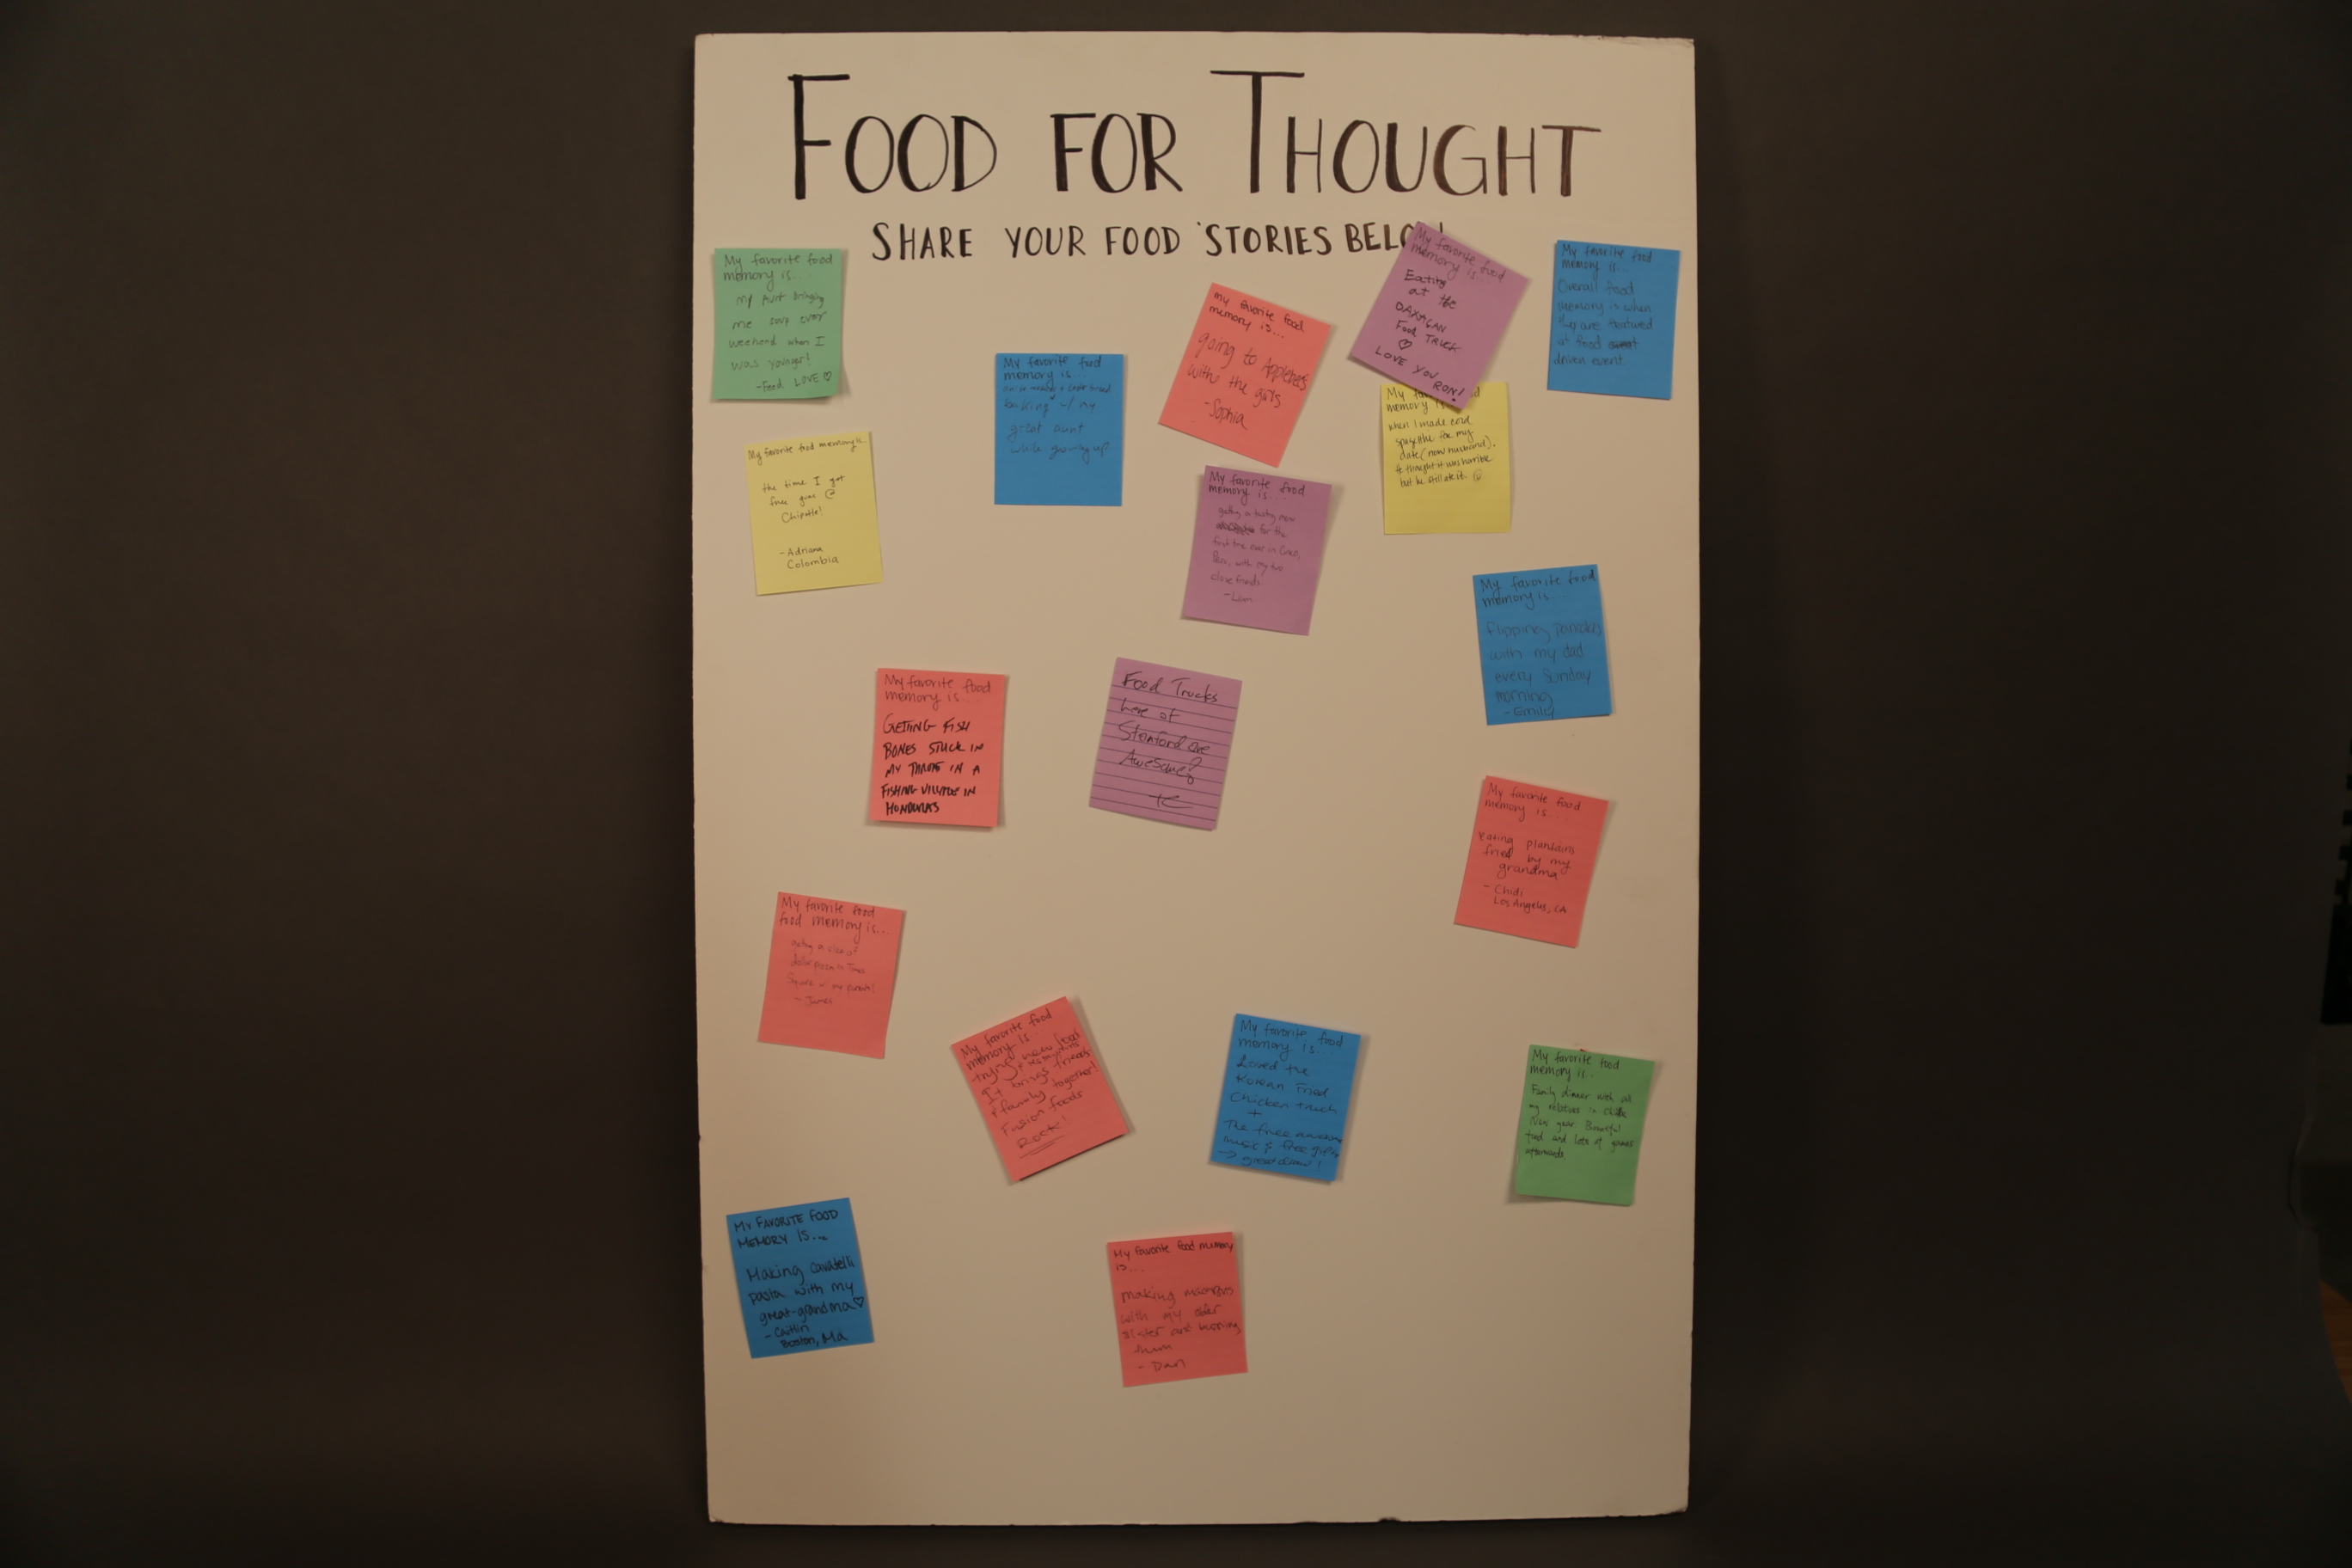 FOOD FOR THOUGHT
SHARE YOUR FOOD STORIES BELOW
My favorite food
memory is...
my Aunt bringing
me soup ever
weekend when I
was younger!
-Food LOVE ♡
My favorite food
memory is...
baking w/ my
great aunt
while growing up
my favorite food
memory is...
going to Applebee's
with the girls
-Sophia
My favorite food
memory is...
Eating
at the
OAXACAN
Food TRUCK
♡
LOVE YOU
RON!
My favorite food
memory is...
Overall food
memory is when
they are featured
at food
driven event.
My favorite food memory is...
the time I got
free guac @
Chipotle!
-Adriana
Colombia
My
memory is
when I made cold
spaghetti for my
date (now husband).
He thought it was horrible
but he still ate it. ☺
My favorite food
memory is...
for the
first time ever in
Peru, with my two
close friends.
My favorite food
memory is...
Flipping pancakes
with my dad
every Sunday
morning
-Emily
My favorite food
memory is...
GETTING FISH
BONES STUCK IN
MY THROAT IN A
FISHING VILLAGE IN
HONDURAS
Food Trucks
here at
Stanford are
Awesome!
My favorite food
memory is...
eating plantains
fried by my
grandma
- Chidi
Los Angeles, CA
My favorite food
food memory is...
eating a slice of
dollar pizza in Times
Square w my parents!
-James
My favorite food
memory is
trying new food
& restaurants
It brings friends
& family together!
Fusion foods
Rock!
My favorite food
memory is
Loved the
Korean Fried
Chicken truck
+
The free awesome
music & free gifts
→ great draw!
My favorite food
memory is...
Family dinner with all
my relatives in
year. Bountiful
food and lots of games
afterwards.
MY FAVORITE FOOD
MEMORY IS...
Making cavatelli
pasta with my
great-grandma♡
- Caitlin
Boston, MA
My favorite food memory
is...
making macarons
with my older
sister and burning
them
- Dan